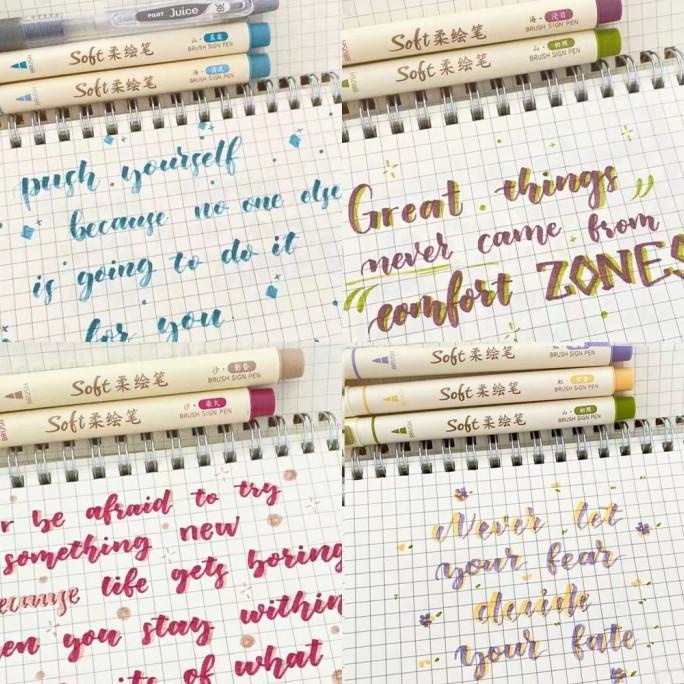 PILOT Juice
Soft 柔绘笔
BRUSH SIGN PEN
BRUSH
Soft 柔绘笔
BRUSH SIGN PEN
push yourself
because no one else
is going to do it
for you
Soft 柔绘笔
BRUSH SIGN PEN
Soft 柔绘笔
BRUSH SIGN PEN
Great things
never came from
comfort ZONES
Soft 柔绘笔
BRUSH SIGN PEN
Soft 柔绘笔
BRUSH SIGN PEN
r be afraid to try
something new
ecause life gets boring
en you stay within
of what
Soft 柔绘笔
BRUSH SIGN PEN
Soft 柔绘笔
BRUSH SIGN PEN
Soft 柔绘笔
BRUSH SIGN PEN
Never let
your fear
decide
your fate